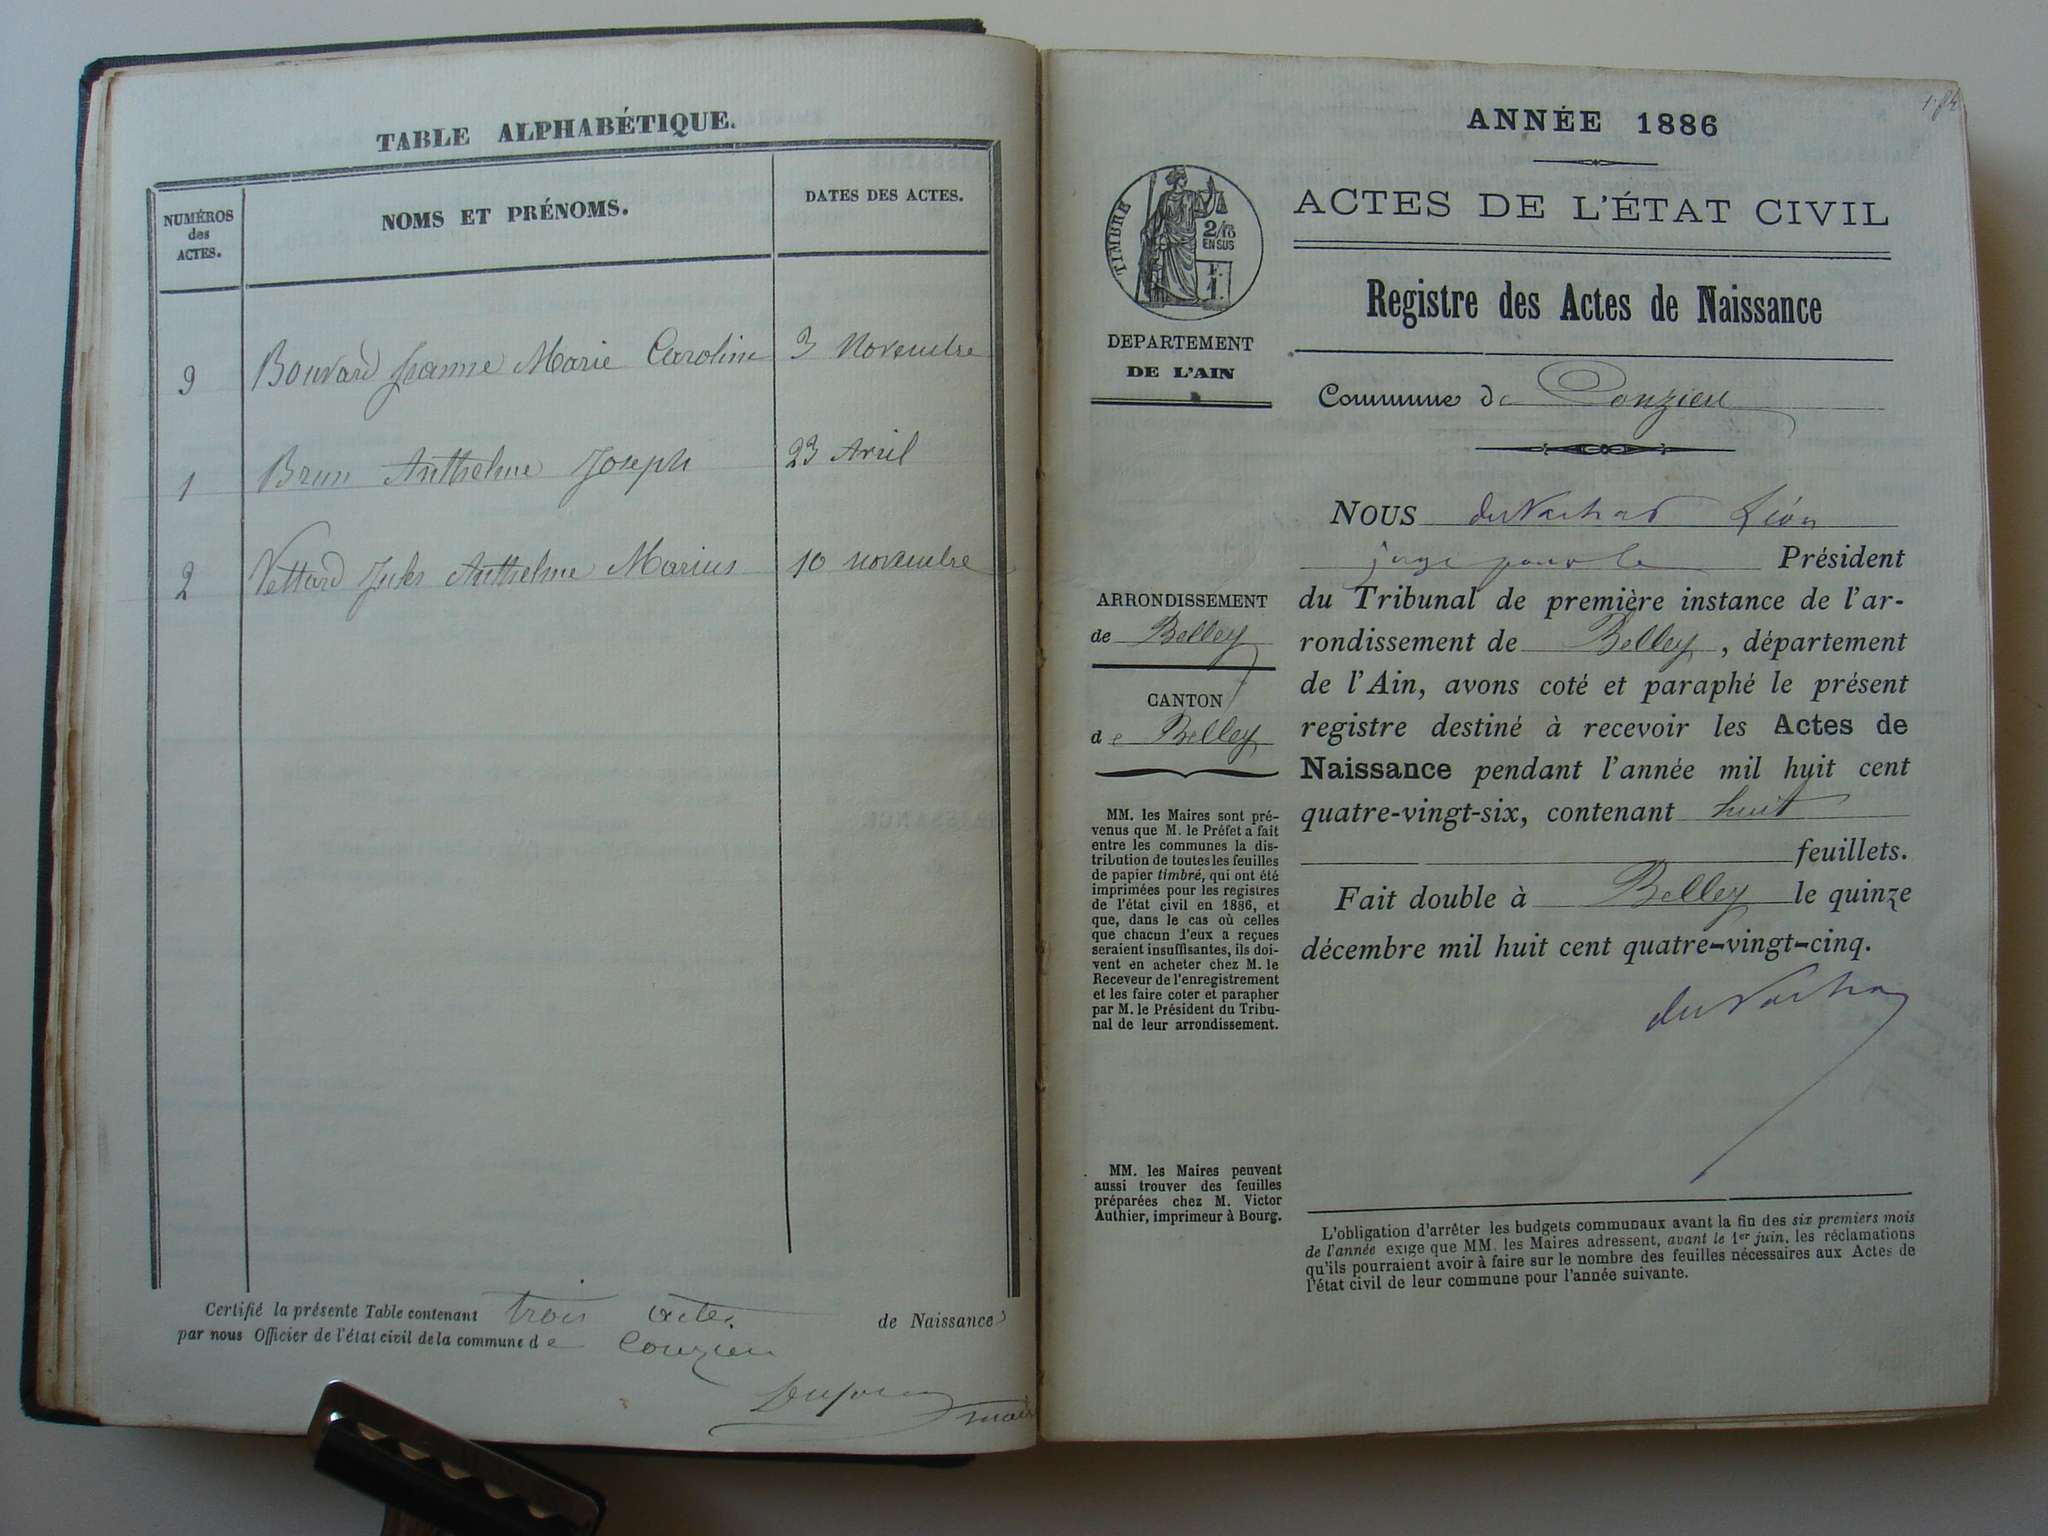 TABLE ALPHABÉTIQUE.
NUMÉROS
des
ACTES.
NOMS ET PRÉNOMS.
DATES DES ACTES.
9 Bouvard Jeanne Marie Caroline 3 Novembre
1 Brun Anthelme Joseph 23 Avril
2 Vettard Jules Anthelme Marius 10 novembre
Certifié la présente Table contenant trois actes de Naissance
par nous Officier de l'état civil de la commune de Conzieu
ANNÉE 1886
ACTES DE L'ÉTAT CIVIL
Registre des Actes de Naissance
Commune de Conzieu
TIMBRE
2/10
EN SUS
F.
1.
DEPARTEMENT
DE L'AIN
ARRONDISSEMENT
de Belley
CANTON
de Belley
MM. les Maires sont pré-
venus que M. le Préfet a fait
entre les communes la dis-
tribution de toutes les feuilles
de papier timbré, qui ont été
imprimées pour les registres
de l'état civil en 1886, et
que, dans le cas où celles
que chacun d'eux a reçues
seraient insuffisantes, ils doi-
vent en acheter chez M. le
Receveur de l'enregistrement
et les faire coter et parapher
par M. le Président du Tribu-
nal de leur arrondissement.
MM. les Maires peuvent
aussi trouver des feuilles
préparées chez M. Victor
Authier, imprimeur à Bourg.
NOUS Léon
juge pour le Président
du Tribunal de première instance de l'ar-
rondissement de Belley, département
de l'Ain, avons coté et paraphé le présent
registre destiné à recevoir les Actes de
Naissance pendant l'année mil huit cent
quatre-vingt-six, contenant huit
feuillets.
Fait double à Belley le quinze
décembre mil huit cent quatre-vingt-cinq.
L'obligation d'arrêter les budgets communaux avant la fin des six premiers mois
de l'année exige que MM. les Maires adressent, avant le 1er juin, les réclamations
qu'ils pourraient avoir à faire sur le nombre des feuilles nécessaires aux Actes de
l'état civil de leur commune pour l'année suivante.